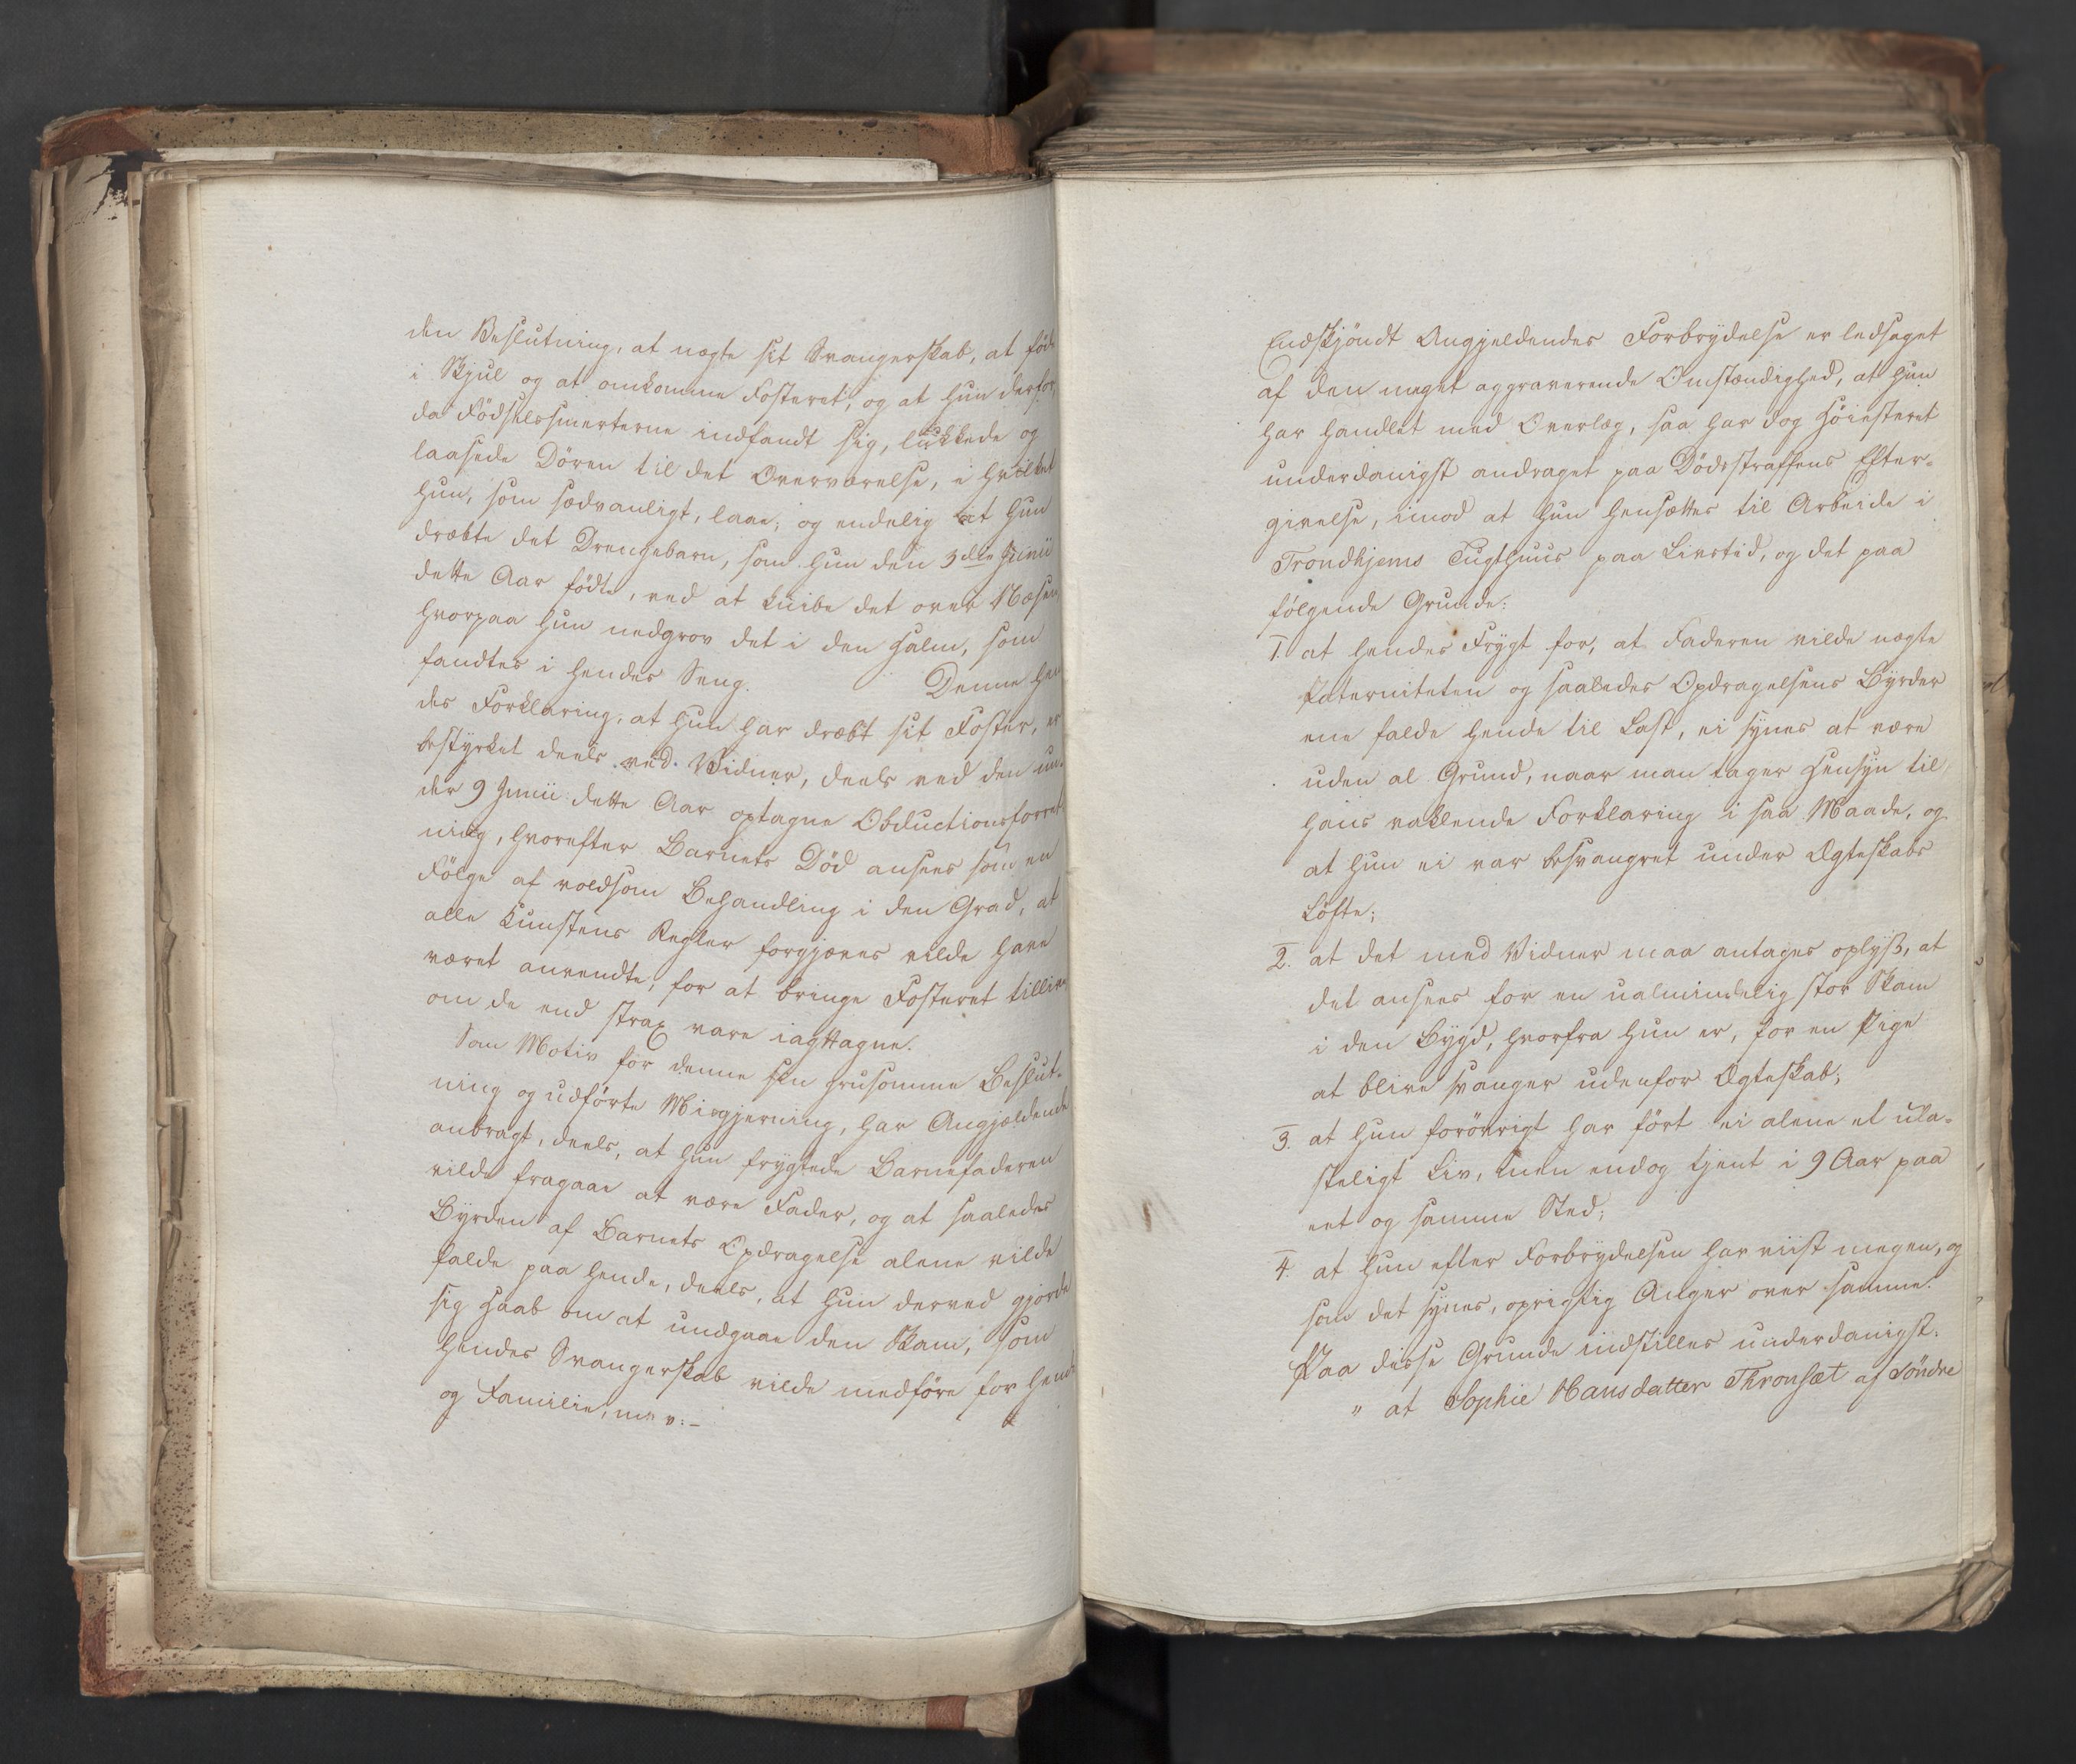 den Beslutning, at nægte sit Svangerskab, at föde
i Skjul og at omkomme Fosteret, og at hun derfor,
da Födselssmerterne indfandt sig, lukkede og
laasede Dören til det Overværelse, i hvilket
hun, som sædvanligt, laae; og endelig at hun
dræbte det Drengebarn, som hun den 3die Junii
dette Aar födte, ved at knibe det over Næsen,
hvorpaa hun nedgrov det i den Halm, som
fandtes i hendes Seng. Denne hen
des Forklaring, at hun har dræbt sit Foster, er
bestyrket deels ved Vidner, deels ved den un-
der 9 Junii dette Aar optagne Obductionsforret-
ning, hvorefter Barnets Död ansees som en
Fölge af voldsom Behandling i den Grad, at
alle Kunstens Regler forgjæves vilde have
været anvendte, for at bringe Fosteret tillive
om de end strax vare iagttagne.
Som Motiv for denne sin grusomme Beslut-
ning og udförte Misgjerning, har Angjeldende
anbragt, deels, at hun frygtede Barnefaderen
vilde fragaae at være Fader, og at saaledes
Byrden af Barnets Opdragelse alene vilde
falde paa hende, deels, at hun derved gjorde
sig Haab om at undgaae den Skam, som
hendes Svangerskab vilde medföre for hende
og Familie, m. v:-
Endskjöndt Angjeldendes Forbrydelse er ledsaget
af den meget aggraverende Omstændighed, at hun
har handlet med Overlæg, saa har dog Höiesteret
underdanigst andraget paa Dödsstraffens Efter-
givelse, imod at hun hensættes til Arbeide i
Trondhjems Tugthuus paa Livstid, og det paa
fölgende Grunde:
1. at hendes Frygt for, at Faderen vilde nægte
Paterniteten og saaledes Opdragelsens Byrder
ene falde hende til Last, ei synes at være
uden al Grund, naar man tager Hensyn til
hans vaklende Forklaring i saa Maade, og
at hun ei var besvangret under Ægteskabs
Löfte;
2. at det med Vidner maa antages oplyst, at
det ansees for en ualmindelig stor Skam
i den Bygd, hvorfra hun er, for en Pige
at blive svanger udenfor Ægteskab;
3. at hun forövrigt har fört ei alene et ula-
steligt Liv, men endog tjent i 9 Aar paa
eet og samme Sted;
4. at hun efter Forbrydelsen har viist megen, og
som det synes, oprigtig Anger over samme.
Paa disse Grunde indstilles underdanigst:
" at Sophie Hansdatter Thronsæt af Söndre